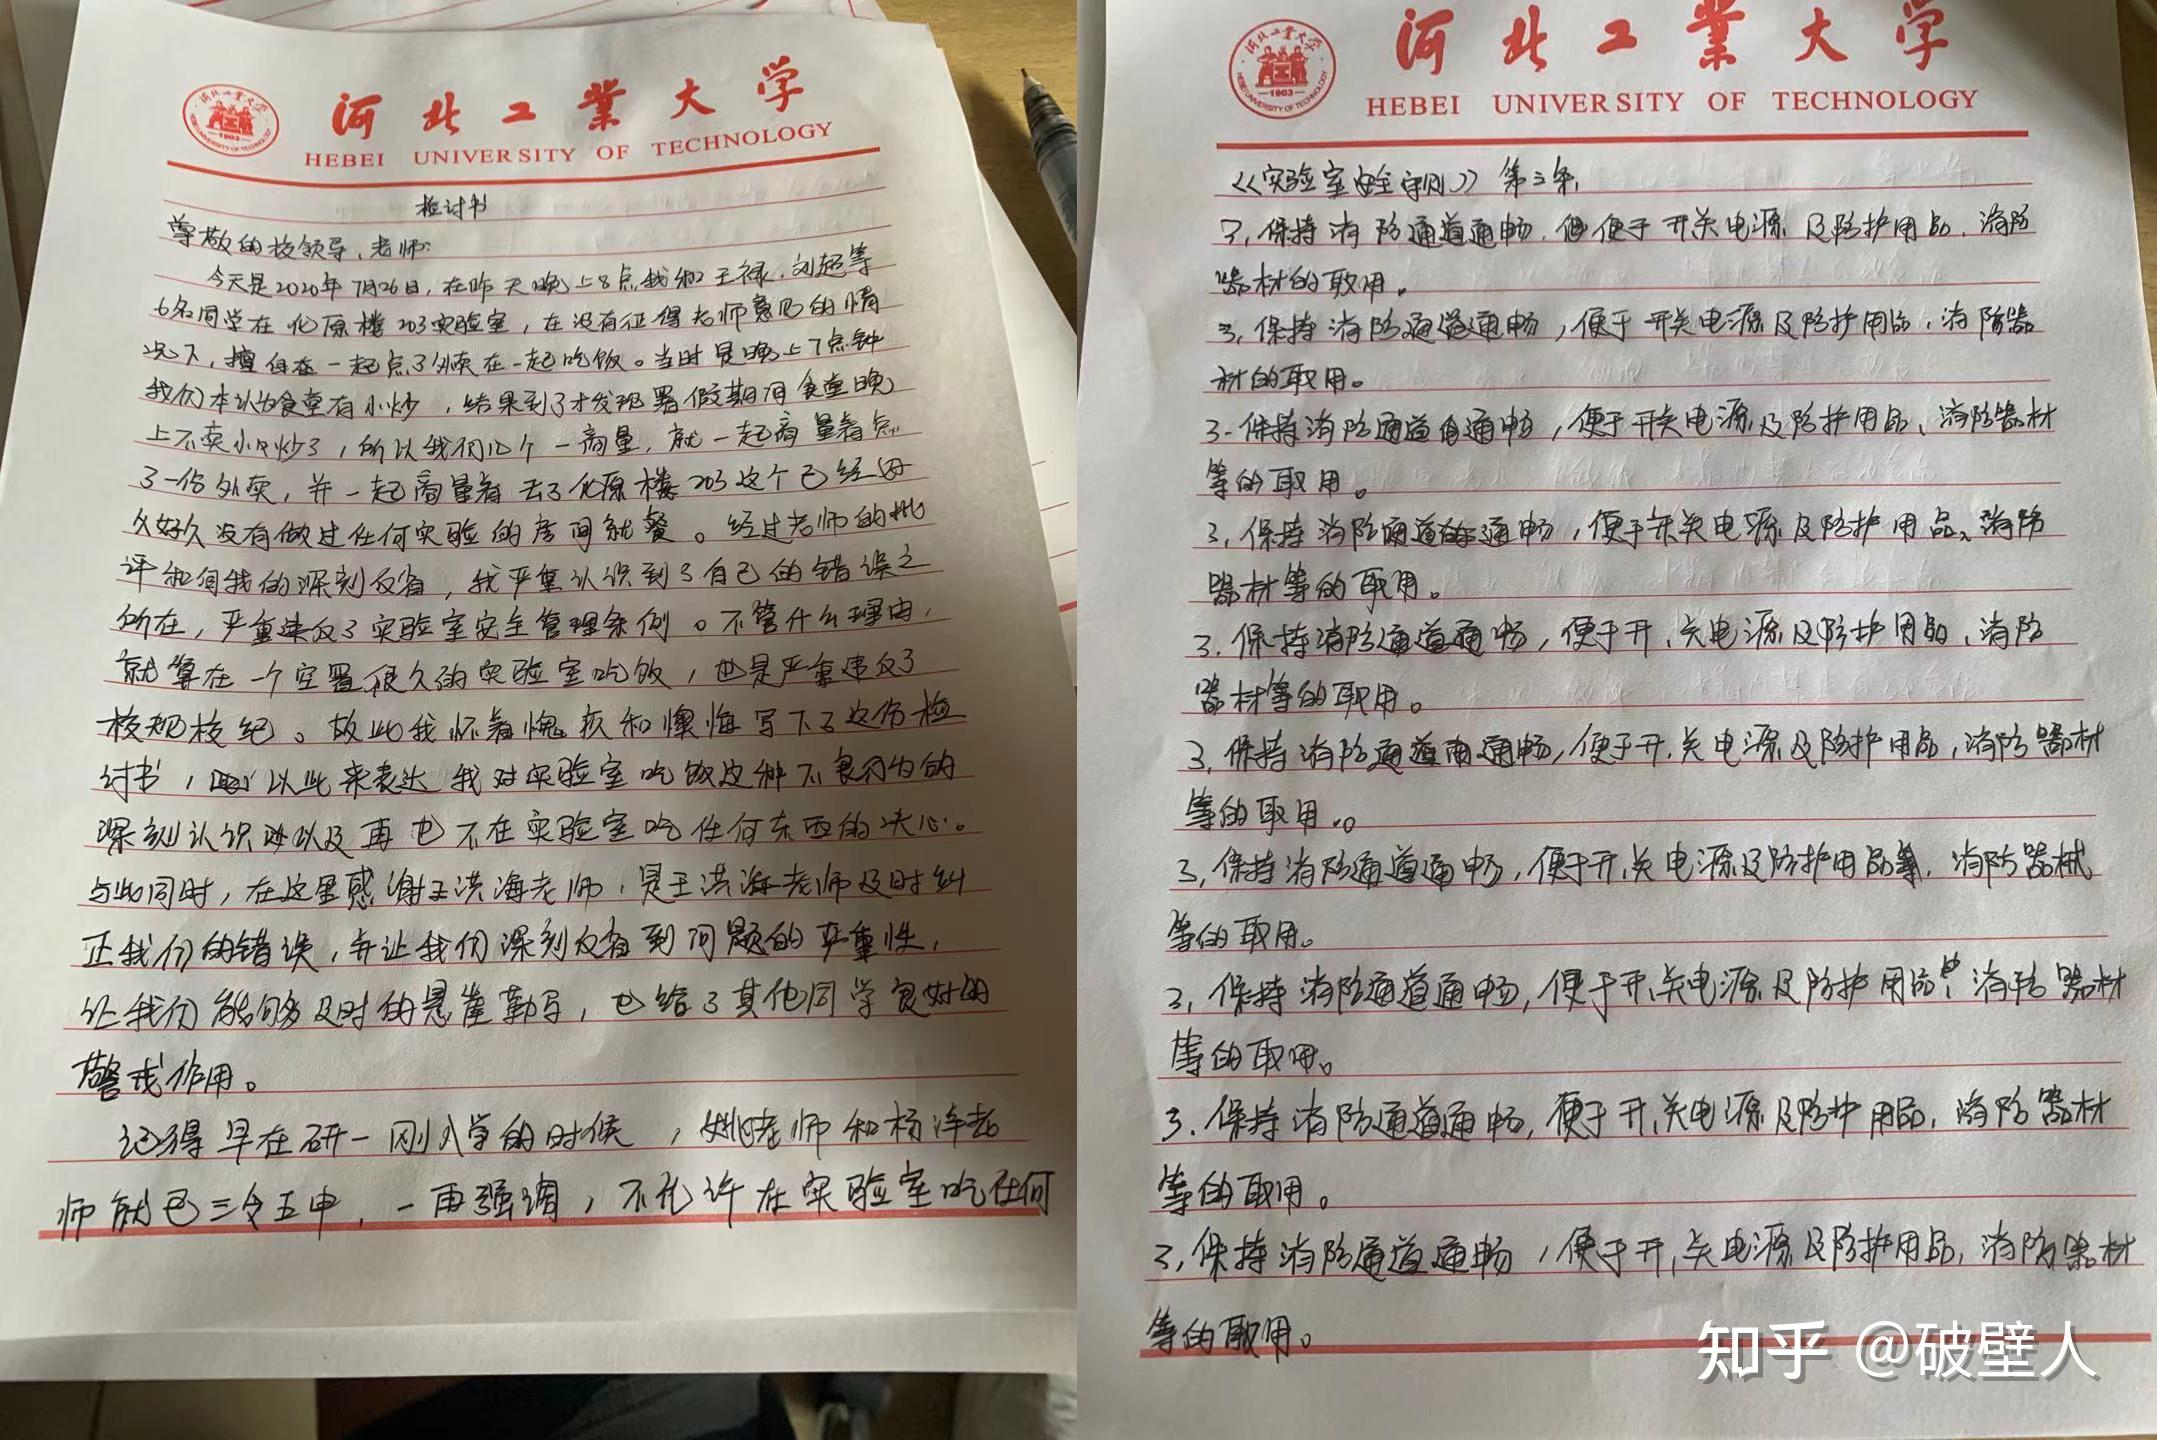 河北工業大学
HEBEI UNIVERSITY OF TECHNOLOGY
检讨书
尊敬的校领导、老师:
今天是2020年7月26日,在昨天晚上8点我和王禄、刘超等
6名同学在化原楼203实验室,在没有征得老师意见的情
况下,擅自在一起点了外卖在一起吃饭。当时是晚上7点钟
我们本认为食堂有小炒,结果到了才发现暑假期间食堂晚
上不卖小炒了,所以我们几个一商量,就一起商量着点
了一份外卖,并一起商量着去了化原楼203这个已经好
久好久没有做过任何实验的房间就餐。经过老师的批
评和自我的深刻反省,我严重认识到了自己的错误之
所在,严重违反了实验室安全管理条例。不管什么理由,
就算在一个空置很久的实验室吃饭,也是严重违反了
校规校纪。故此我怀着愧疚和懊悔写下了这份检
讨书,以此来表达我对实验室吃饭这种不良行为的
深刻认识以及再也不在实验室吃任何东西的决心。
与此同时,在这里感谢王洪海老师,是王洪海老师及时纠
正我们的错误,并让我们深刻反省到问题的严重性,
让我们能够及时的悬崖勒马,也给了其他同学良好的
警戒作用。
记得早在研一刚入学的时候,姚老师和杨泽老
师就已三令五申,一再强调,不允许在实验室吃任何
河北工業大学
HEBEI UNIVERSITY OF TECHNOLOGY
《实验室安全守则》第三条,
3,保持消防通道通畅,便于开关电源及防护用品、消防
器材的取用。
3,保持消防通道通畅,便于开关电源及防护用品、消防器
材的取用。
3.保持消防通道通畅,便于开关电源及防护用品、消防器材
等的取用。
3,保持消防通道通畅,便于开关电源及防护用品、消防
器材等的取用。
3.保持消防通道通畅,便于开、关电源及防护用品、消防
器材等的取用。
3,保持消防通道通畅,便于开、关电源及防护用品,消防器材
等的取用。
3,保持消防通道通畅,便于开、关电源及防护用品,消防器械
等的取用。
3,保持消防通道通畅,便于开、关电源及防护用品,消防器材
等的取用。
3.保持消防通道通畅,便于开、关电源及防护用品,消防器材
等的取用。
3,保持消防通道通畅,便于开、关电源及防护用品,消防器材
等的取用。
知乎 @破壁人